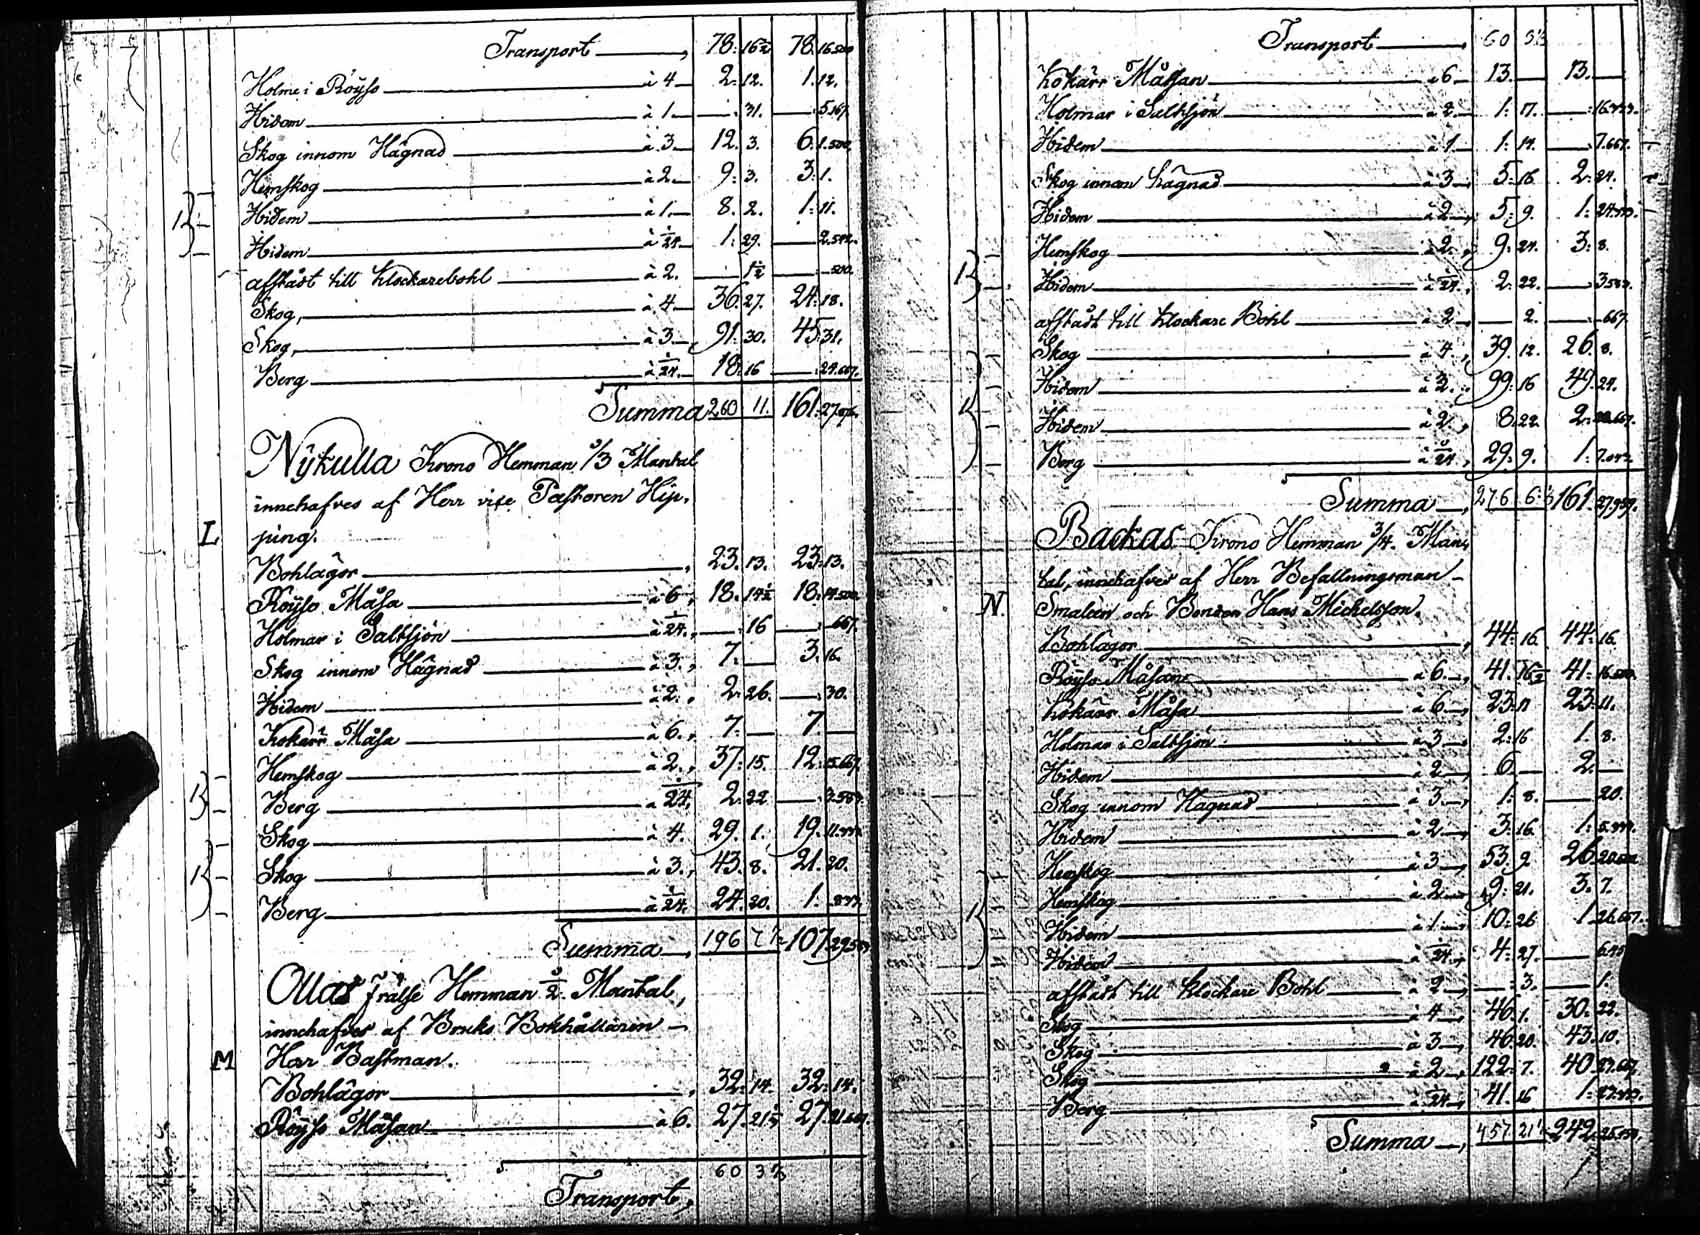 Transport — 78. 16½ 78. 16.500
Holme i Röyso — à 4 — 2. 12. 1. 12.
Hidem — à 1. — 31. — 5.167.
Skog innom Hägnad — à 3 — 12. 3. 6. 1.500.
Hemskog — à 2. — 9. 3. 3. 1.
Hidem — à 1. — 8. 2. 1. 11.
Hidem — à 1/24. — 1. 29. — 2.542.
afstådt till Klockarebohl — à 2. — 1½ — .500.
Skog, — à 4 — 36. 27. 24. 18.
Skog, — à 3 — 91. 30. 45. 31.
Berg — à 1/24. — 18. 16 — 24.667.
Summa 260 11. 161.
Nÿkulla Krono Hemman 1/3 Mantal
innehafves af Herr vice Pastoren Hip-
L
ping.
Bohlägor — 23. 13. 23. 13.
Röyso Måsa — à 6, 18. 14½ 18. 14.500.
Holmar i Saltsjön — à 1/24. — 16 — .667.
Skog innom Hägnad — à 3., 7. — 3. 16.
Hidem — à 2., 2. 26. — 30.
Kokärr Måsa — à 6., 7. — 7 —
Hemskog — à 2., 37. 15. 12. 15.667.
Berg — à 1/24, 2. 22 — 3.583.
Skog — à 4. 29. 1. 19. 11.333.
Skog — à 3., 43. 8. 21. 20.
Berg — à 1/24. 24. 20. 1.
Summa — 196 7½ 107.
Ollas frälse Hemman 1/2 Mantal,
innehafves af Bruks Bokhållaren —
M
Herr Bastman.
Bohlägor — 32. 14. 32. 14.
Röyso Måsan — à 6. 27. 21½ 27.
60 3½
Transport,
Transport — 60 3½
Kokärr Måssan — à 6 — 13. — 13. —
Holmar i Saltsjön — à 2 — 1. 17. — 16.333.
Hidem — à 1 — 1. 14. — 7.667.
Skog innom Hägnad — à 3 — 5. 16 2. 24.
Hidem — à 2 — 5. 9. 1. 24.333.
Hemskog — à 2. — 9. 24. 3. 8.
Hidem — à 1/24. 2. 22. — 3.583.
afstådt till Klockare Bohl — à 2 — 2. — .667.
Skog — à 4, 39. 12. 26. 8.
Hidem — à 3. 99. 16 49. 24.
Hidem — à 2., 8. 22. 2.
Berg — à 1/24, 29. 9. 1.
Summa — 276 6 161
Backas Krono Hemman 3/4. Man-
tal, innehafves af Herr Befallningsman —
N.
Smaleen och Bonden Hans Mickelsson.
Bohlägor — 44. 16. 44. 16.
Röyso Måsan — à 6. — 41. 16½ 41. 16.500.
Kokärr Måsa — à 6 — 23. 11 23. 11.
Holmar i Saltsjön — à 3 — 2. 16 1. 8.
Hidem — à 2 — 6. — 2. —
Skog innom Hägnad — à 3 — 1. 8. — 20.
Hidem — à 2 — 3. 16. 1. 5.333.
Hemskog — à 3 — 53. 9. 26. 20.500.
Hemskog — à 2 — 9. 21. 3. 7.
Hidem — à 1 — 10. 26 1. 26.667.
Hidem — à 1/24, 4. 27. —
afstådt till Klockare Bohl — à 2 — 3. — 1.
Skog — à 4 — 46. 1. 30. 22.
Skog — à 3, 20. 43. 10.
Skog — à 2, 122. 7. 40.
Berg — à 1/24, 41. 16 1.
Summa — 457 21 242.